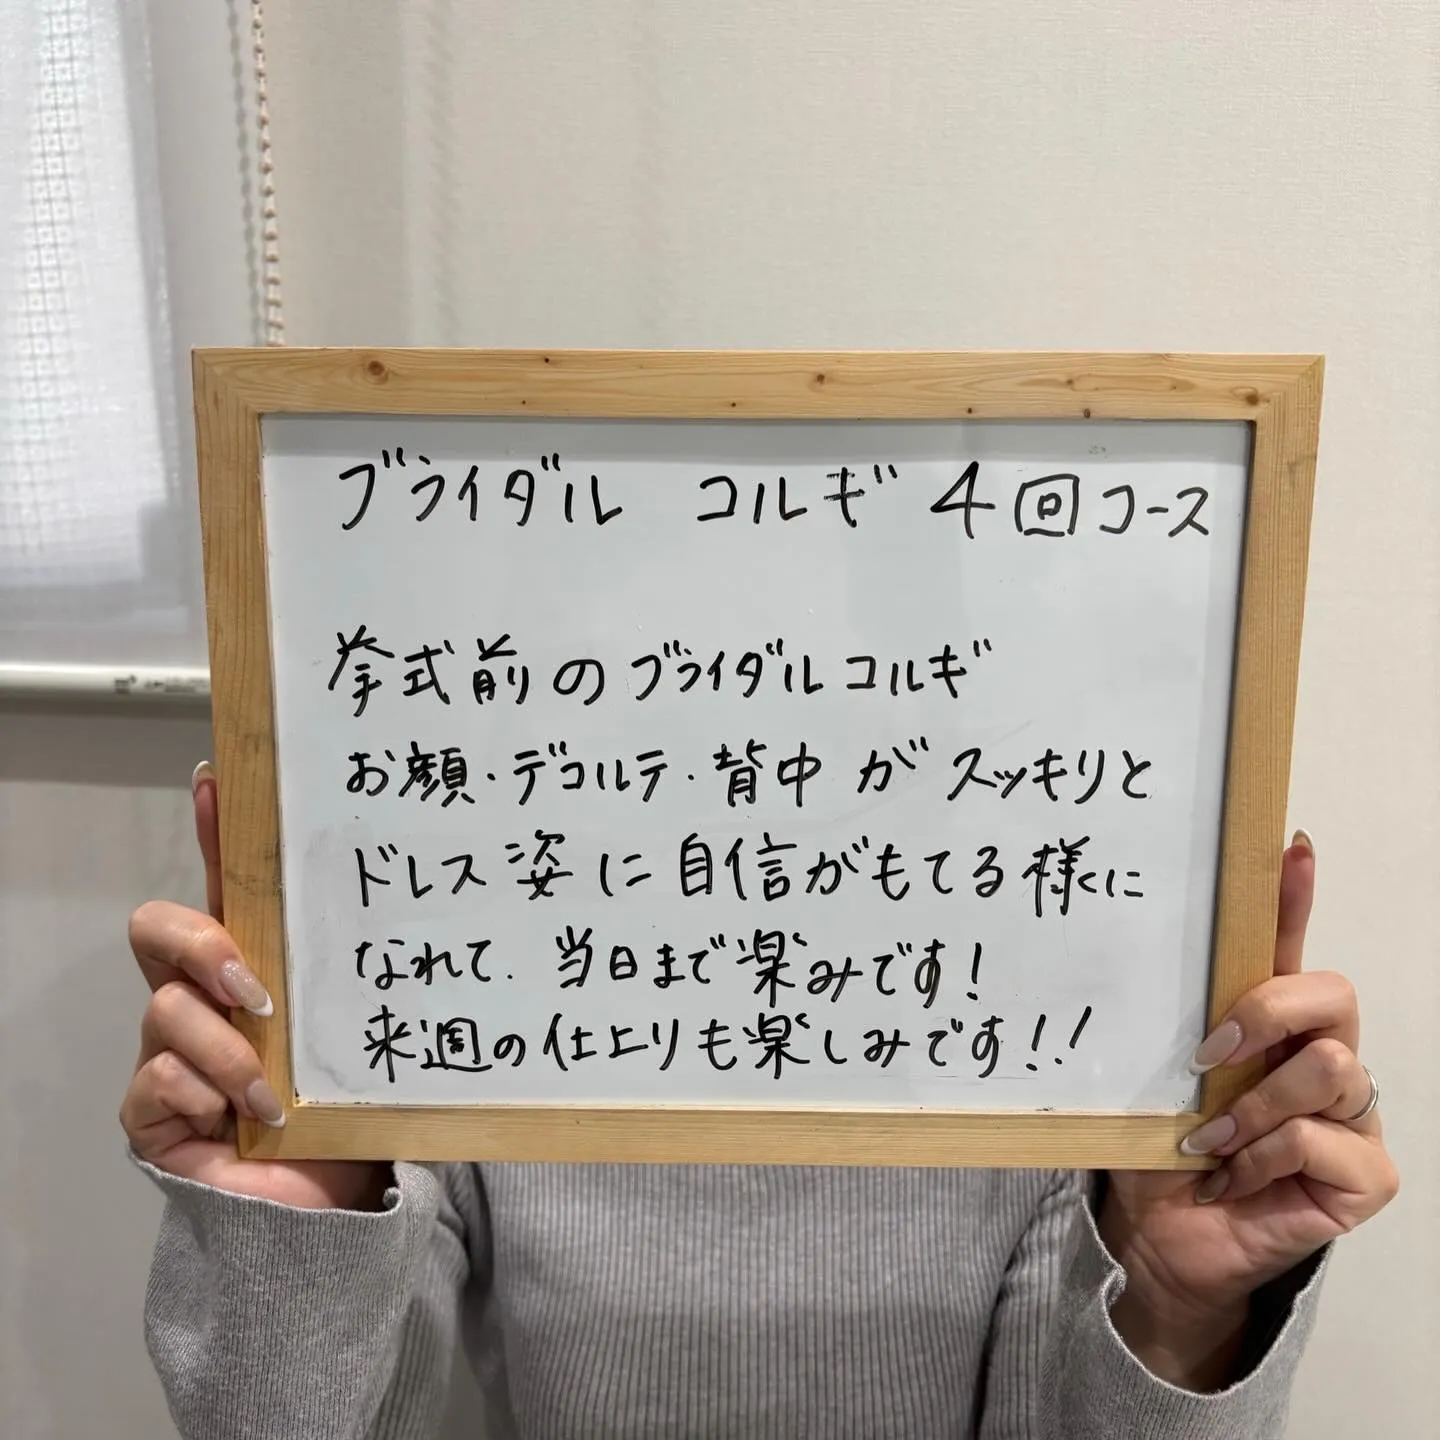 ブライダル コルギ 4回コース
挙式前のブライダルコルギ
お顔・デコルテ・背中がスッキリと
ドレス姿に自信がもてる様に
なれて、当日まで楽みです!
来週の仕上りも楽しみです!!